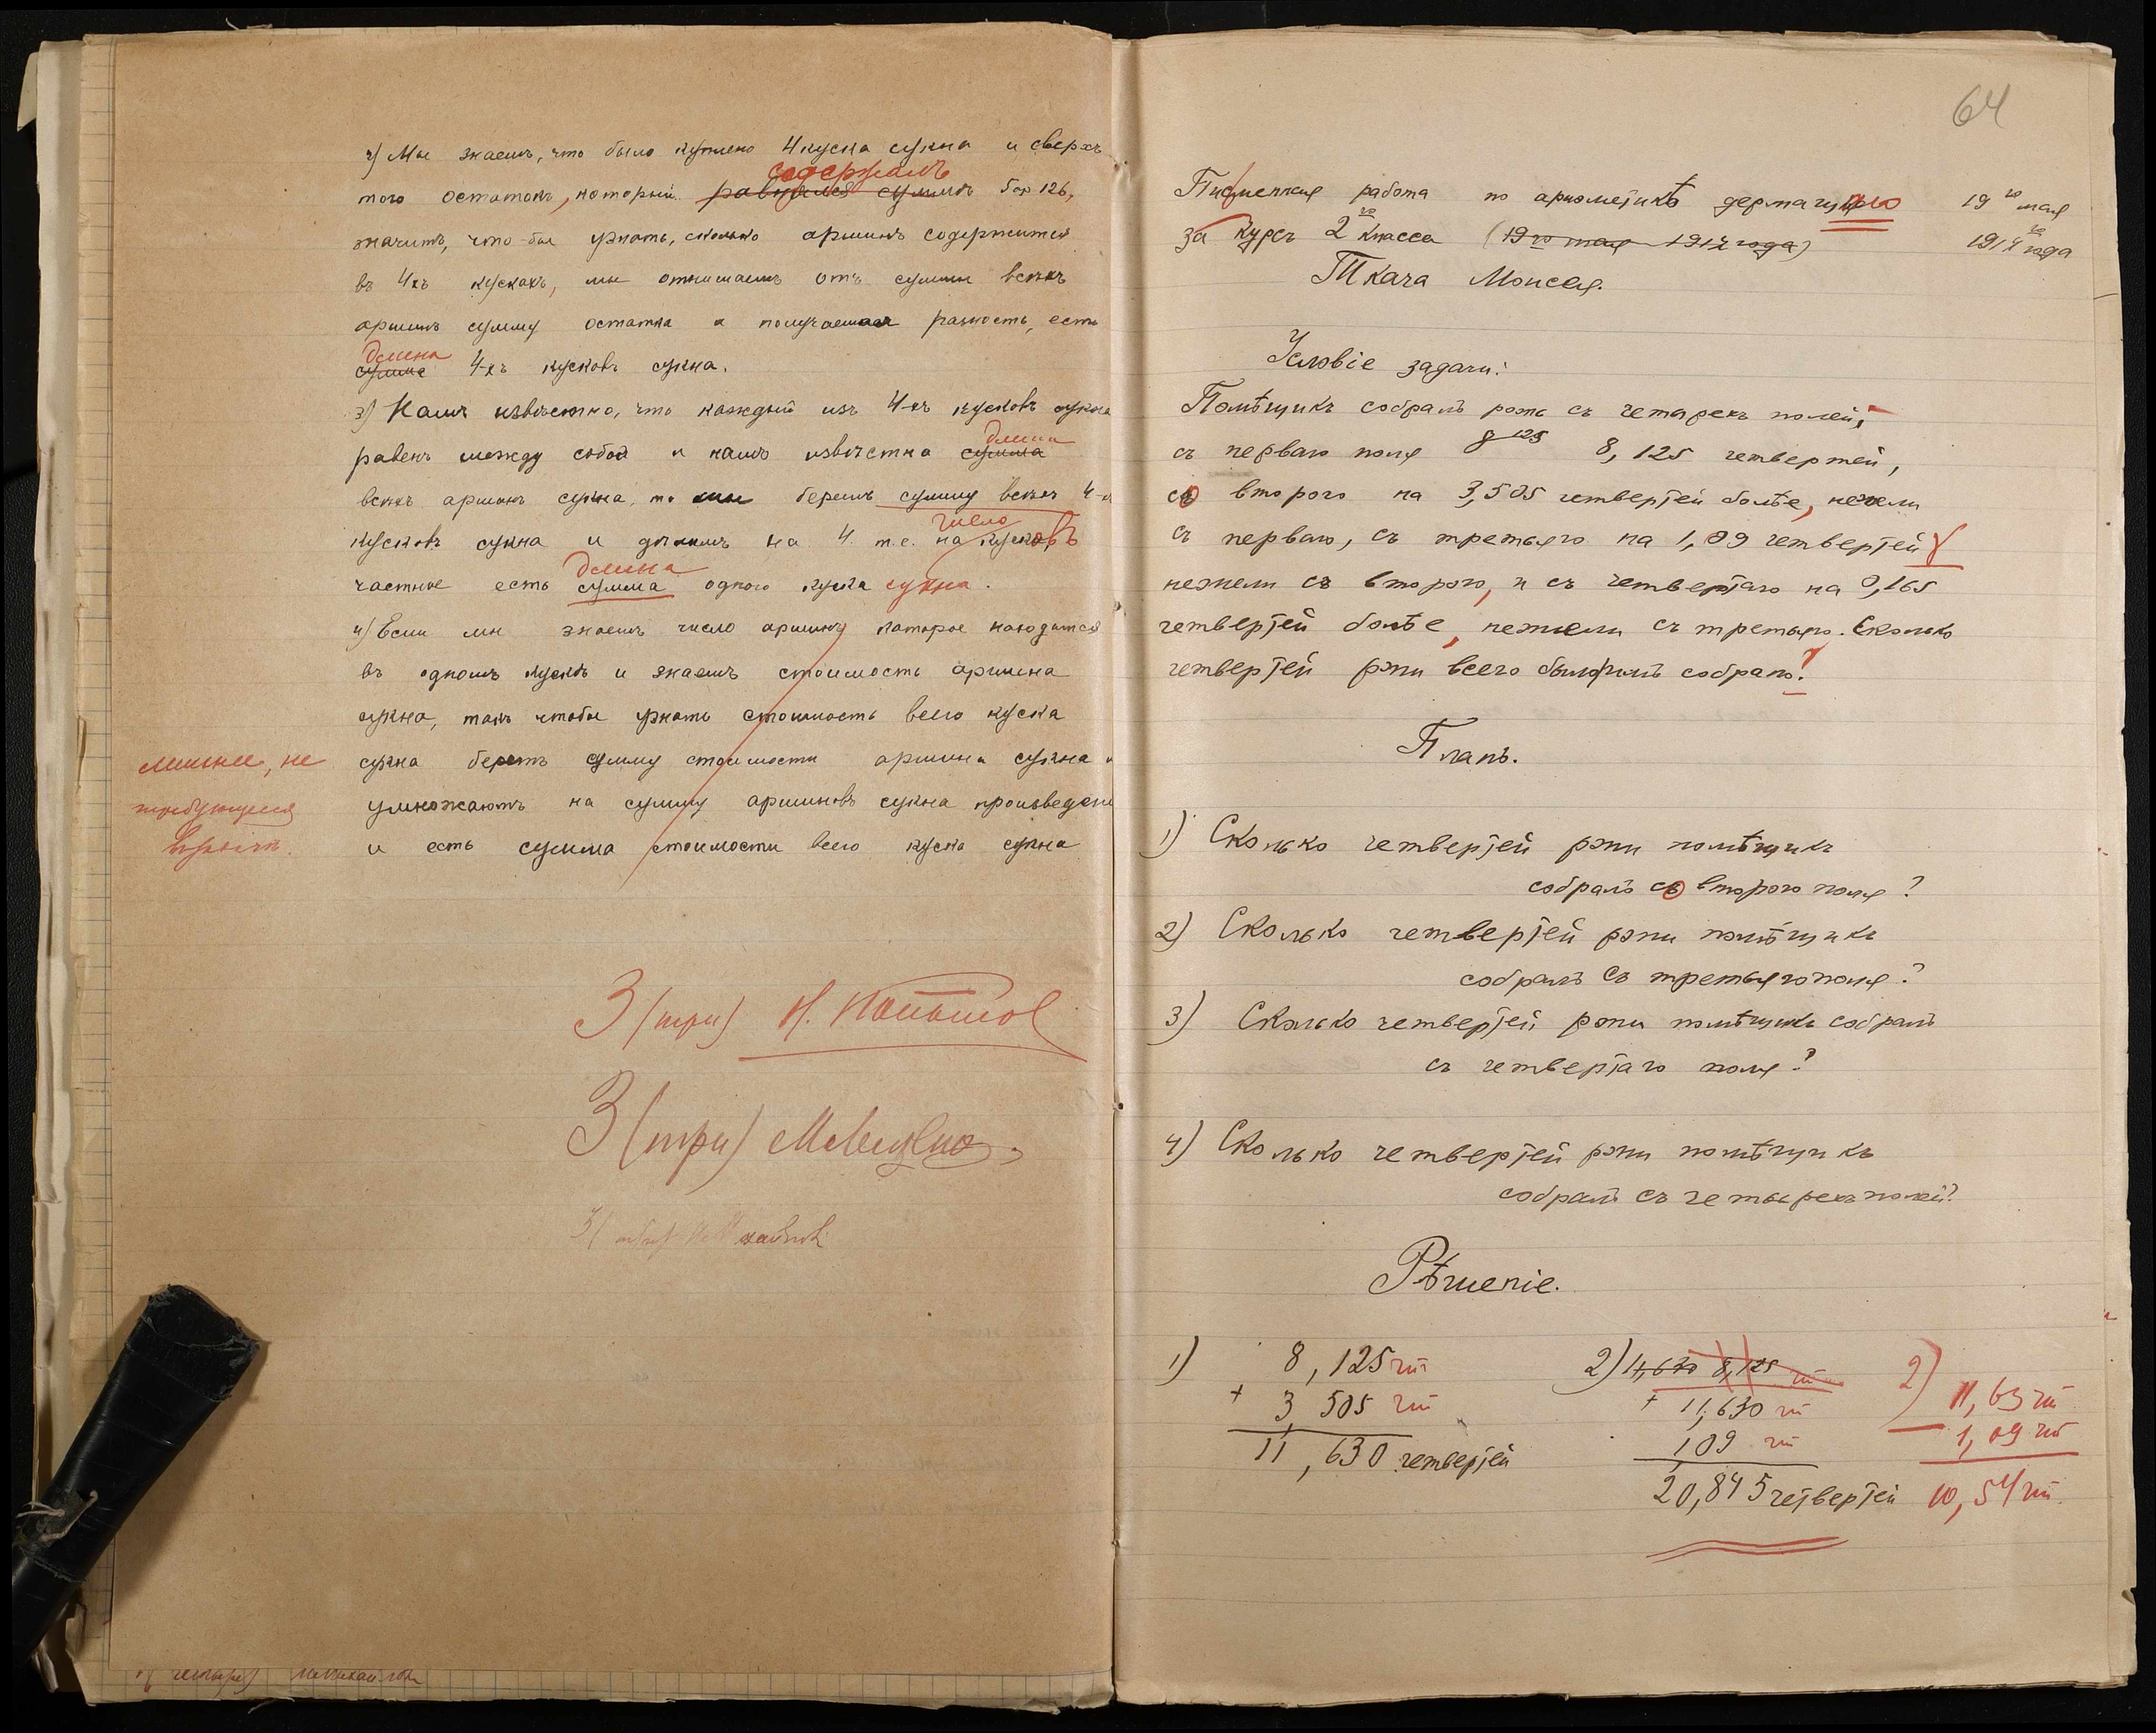 2) Мы знаемъ, что было куплено 4 куска сукна и сверхъ
содержалъ
того остатокъ, который равнялся суммѣ 126,
значитъ, что-бы узнать, сколько аршинъ содержится
въ 4хъ кускахъ, мы отнимаемъ отъ суммы всѣхъ
аршинъ сумму остатка и получаемая разность, есть
длина
сумма 4-хъ кусковъ сукна.
3) Намъ извѣстно, что каждый изъ 4-хъ кусковъ сукна
длина
равенъ между собой и намъ извѣстна сумма
всѣхъ аршинъ сукна, то мы беремъ сумму всѣхъ 4-х
число
кусковъ сукна и дѣлимъ на 4 т.е. на кусковъ
длина
частное есть сумма одного куска сукна.
4) Если мы знаемъ число аршинъ которое находится
въ одномъ кускѣ и знаемъ стоимость аршина
сукна, такъ чтобы узнать стоимость всего куска
сукна берутъ сумму стоимости аршина сукна и
умножаютъ на сумму аршиновъ сукна произведени
и есть сумма стоимости всего куска сукна
лишнее, не
требующееся
3 (три) Н.
3 (три)
64
Письменная работа по ариѳметикѣ 19го мая
за курсъ 2го класса (19го мая 1914 года) 1914го года
Ткача Моисея.
Условіе задачи:
Помѣщикъ собралъ рожь съ четырехъ полей;
съ перваго поля 8 125 8,125 четвертей,
со второго на 3,505 четвертей болѣе, нежели
съ перваго, съ третьяго на 1,09 четвертей
нежели съ второго, и съ четвертаго на 0,165
четвертей болѣе, нежели съ третьяго. Сколько
четвертей ржи всего было имъ собрано?
Планъ.
1) Сколько четвертей ржи помѣщикъ
собралъ со второго поля?
2) Сколько четвертей ржи помѣщикъ
собралъ съ третьяго поля?
3) Сколько четвертей ржи помѣщикъ собралъ
съ четвертаго поля?
4) Сколько четвертей ржи помѣщикъ
собралъ съ четырехъ полей?
Рѣшеніе.
1) 8,125 чт
+ 3,505 чт
11,630 четвертей
2) 11,630 8,125 чт
+ 11,630 чт
1,09 чт
20,845 четвертей
2) 11,63 чт
— 1,09 чт
10,54 чт.